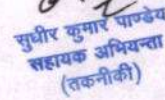 सुधीर कुमार पाण्डेय
सहायक अभियन्ता
(तकनीकी)